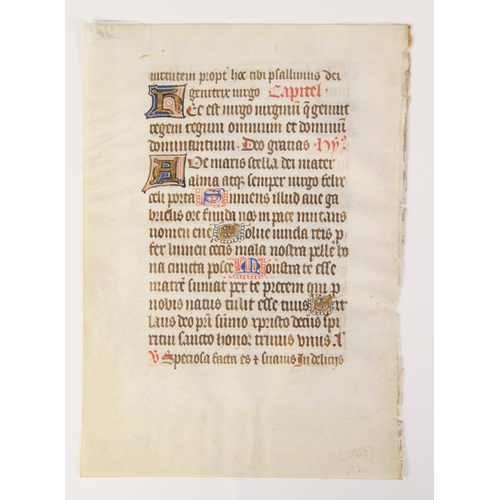 virtutem propt hoc tibi psallimus dei
genitrix virgo Capitel
Hec est virgo virginũ q̃ genuit
regem regum omnium et dominũ
dominantium. Deo gracias Hy
Ave maris stella dei mater
alma atq; semper virgo felix
celi porta Sumens illud ave ga
brielis ore funda nos in pace mutans
nomen eve Solve vincla reis p
fer lumen cecis mala nostra pelle bo
na cuncta posce Monstra te esse
matrẽ sumat per te precem qui p
nobis natus tulit esse tuus Sit
laus deo pr̃i sũmo xpristo decus spi
ritui sancto honor trinus unus
V Speciosa facta es et suavis In delicijs